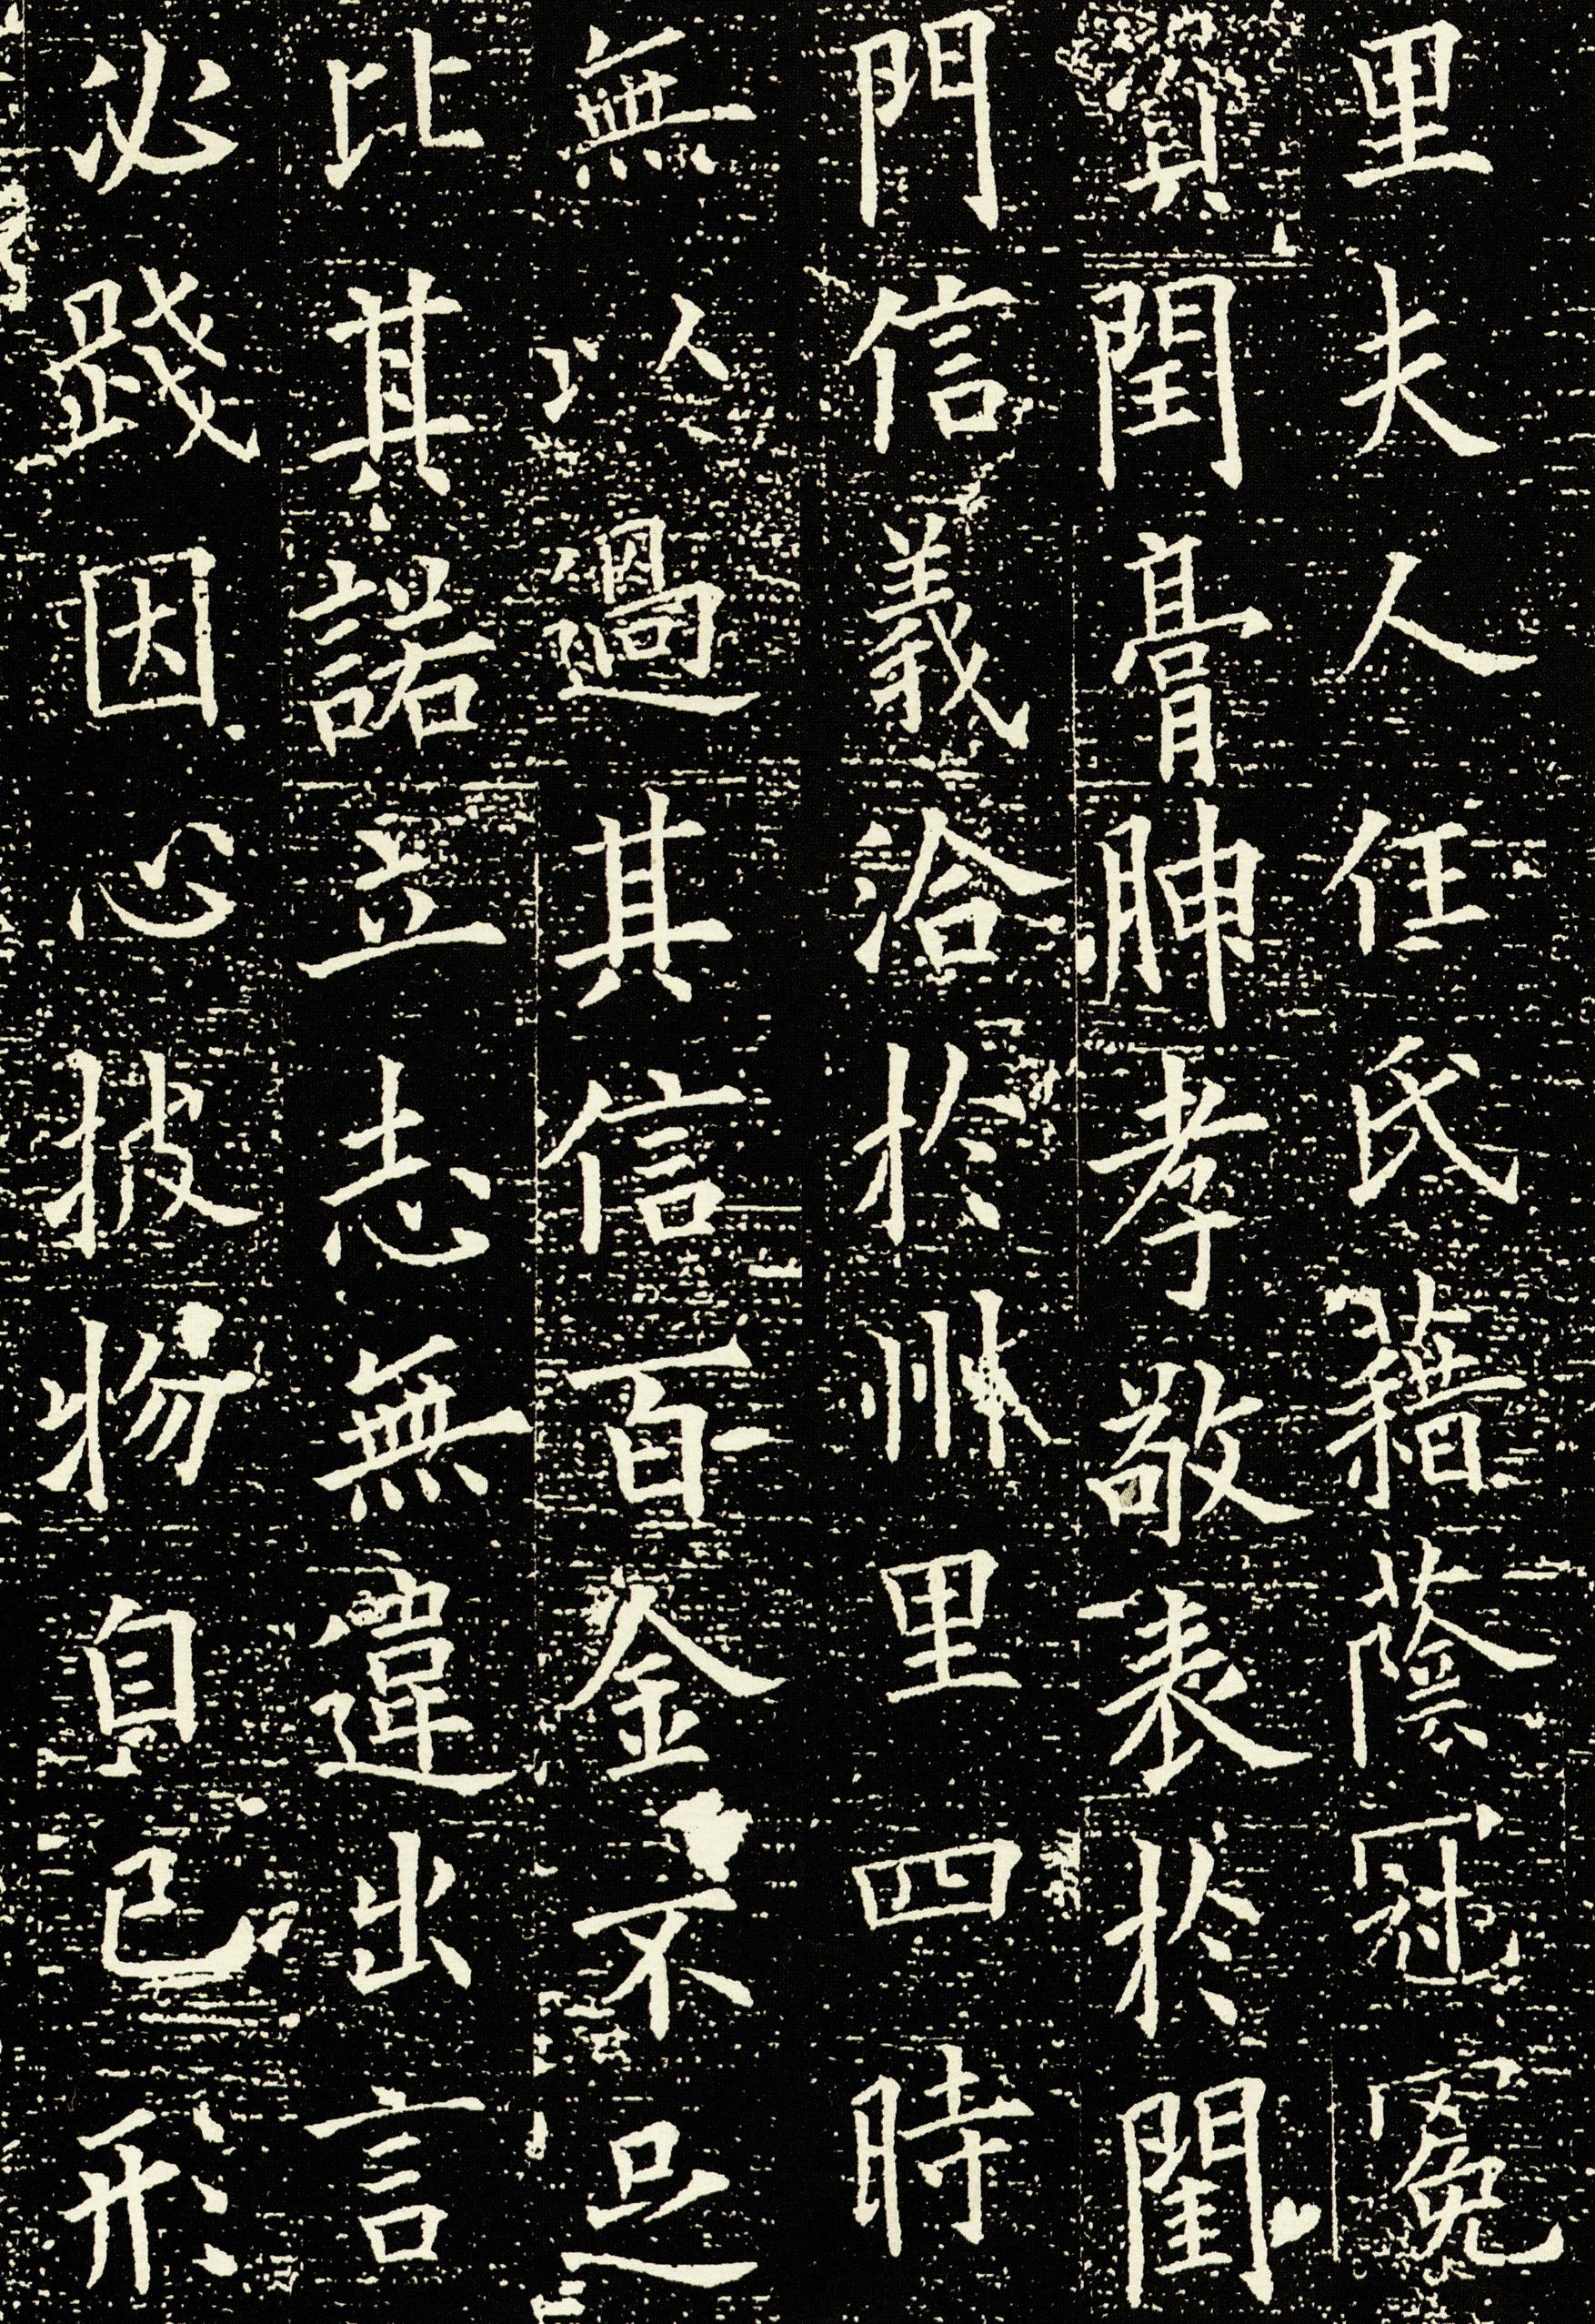 里夫人任氏藉蔭冠冕
閨膏腴孝敬表於閨
門信義洽於州里四時
無以過其信百金不足
比其諾立志無違出言
必踐因心披物自己形